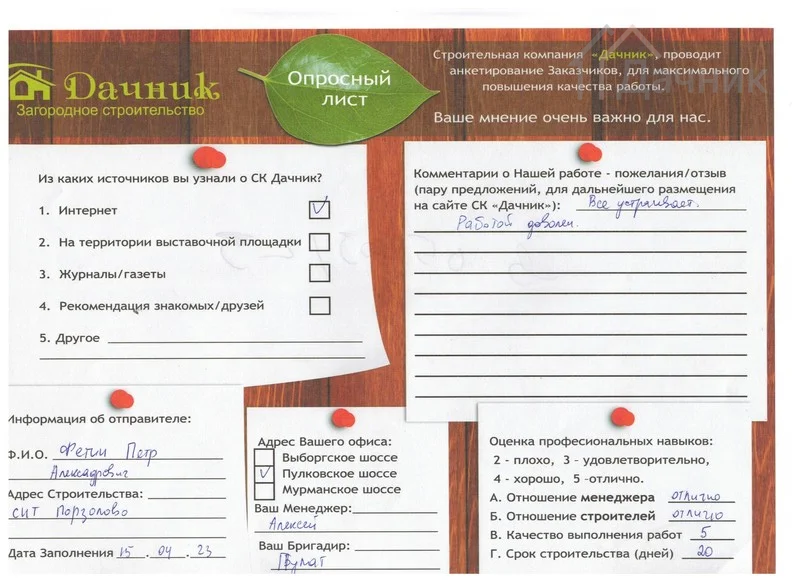 Дачник
Загородное строительство
Опросный
лист
Строительная компания «Дачник», проводит
анкетирование Заказчиков, для максимального
повышения качества работы.
Ваше мнение очень важно для нас.
Дачник
Из каких источников вы узнали о СК Дачник?
1. Интернет
2. На территории выставочной площадки
3. Журналы/газеты
4. Рекомендация знакомых/друзей
5. Другое
Комментарии о Нашей работе - пожелания/отзыв
(пару предложений, для дальнейшего размещения
на сайте СК «Дачник»): Все устраивает.
Работой доволен.
Информация об отправителе:
Ф.И.О. Фетин Петр
Александрович
Адрес Строительства:
снт Порзолово
Дата Заполнения 15.04.23
Адрес Вашего офиса:
Выборгское шоссе
Пулковское шоссе
Мурманское шоссе
Ваш Менеджер:
Алексей
Ваш Бригадир:
Булат
Оценка профессиональных навыков:
2 - плохо, 3 - удовлетворительно,
4 - хорошо, 5 -отлично.
А. Отношение менеджера отлично
Б. Отношение строителей отлично
В. Качество выполнения работ 5
Г. Срок строительства (дней) 20